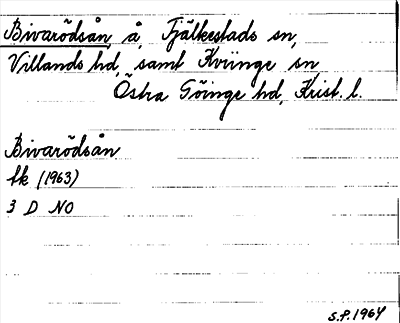 Bivarödsån, å, Fjälkestads sn,
Villands hd, samt Kviinge sn
Östra Göinge hd, Krist. l.
Bivarödsån
fk (1963)
3 D NO
S.P. 1964